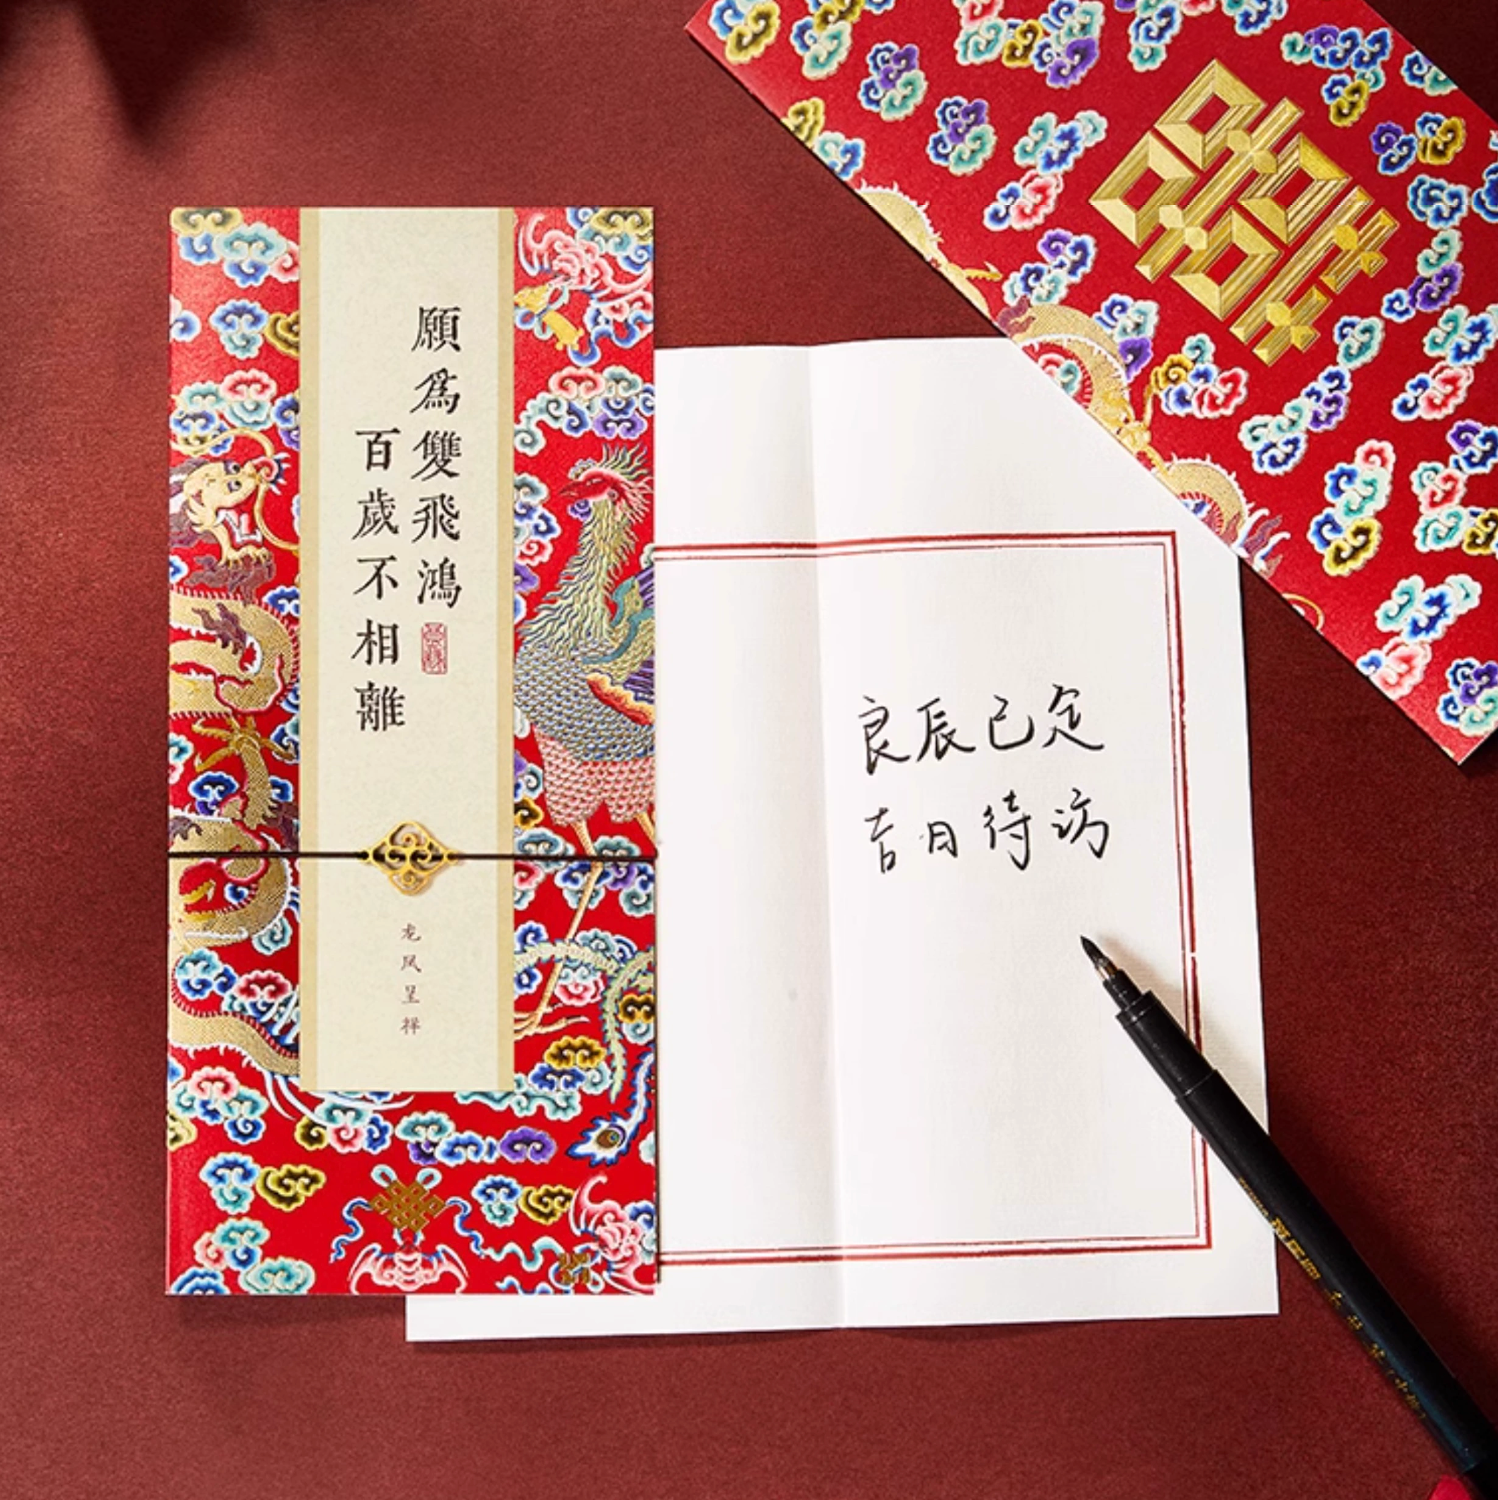 願爲雙飛鴻
百歲不相離
龙凤呈祥
囍
良辰已定
吉日待访